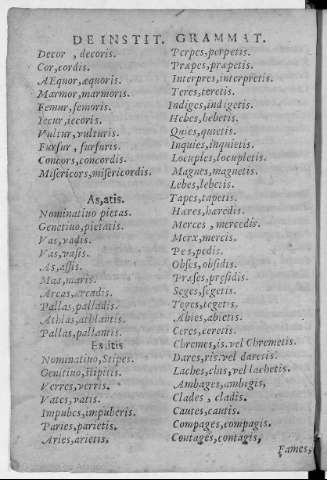 DE INSTIT. GRAMMAT.
Decor, decoris.
Cor, cordis.
AEquor, æquoris.
Marmor, marmoris.
Femur, femoris.
Iecur, iecoris.
Vultur, vulturis.
Furfur, furfuris.
Concors, concordis.
Misericors, misericordis.
As, atis.
Nominatiuo pietas.
Genetiuo, pietatis.
Vas, vadis.
Vas, vasis.
As, assis.
Mas, maris.
Arcas, arcadis.
Pallas, palladis.
Athlas, athlantis.
Pallas, pallantis.
Es, itis
Nominatiuo, Stipes.
Genitiuo, stipitis.
Verres, verris.
Vates, vatis.
Impubes, impuberis.
Paries, parietis.
Aries, arietis.
Perpes, perpetis.
Præpes, præpetis.
Interpres, interpretis.
Teres, teretis.
Indiges, indigetis.
Hebes, hebetis.
Quies, quietis.
Inquies, inquietis.
Locuples, locupletis.
Magnes, magnetis.
Lebes, lebetis.
Tapes, tapetis.
Hæres, hæredis.
Merces, mercedis.
Merx, mercis.
Pes, pedis.
Obses, obsidis.
Præses, præsidis.
Seges, segetis.
Teges, tegetis.
Abies, abietis.
Ceres, cereris.
Chremes, is. vel Chremetis.
Dares, ris. vel daretis.
Laches, chis, vel lachetis.
Ambages, ambagis,
Clades, cladis.
Cautes, cautis.
Compages, compagis.
Contages, contagis,
Fames,